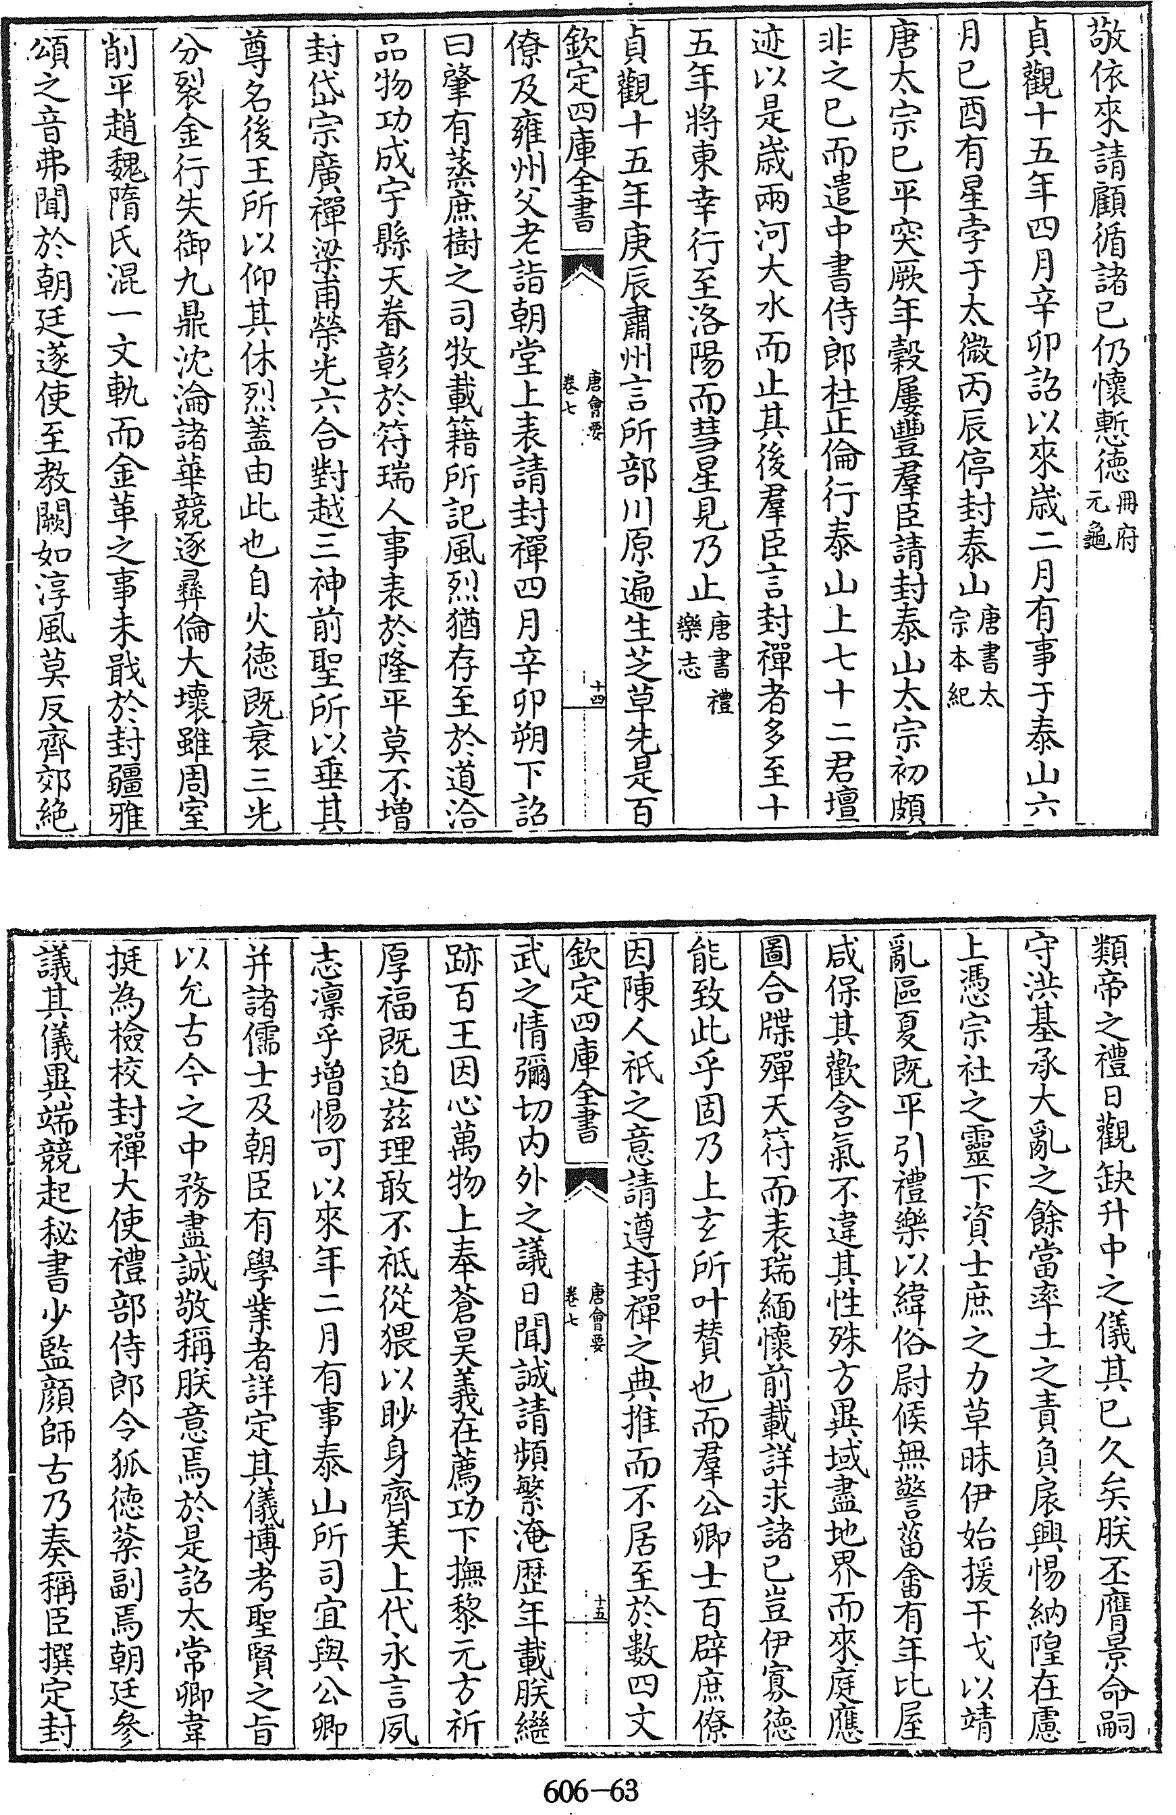 敬依來請顧循諸已仍懷慙徳冊府元龜
貞觀十五年四月辛卯詔以來歳二月有事于泰山六
月已酉有星孛于太微丙辰停封泰山唐書太宗本紀
唐太宗已平突厥年穀屢豐羣臣請封泰山太宗初頗
非之已而遣中書侍郎杜正倫行泰山上七十二君壇
迹以是歳兩河大水而止其後羣臣言封禪者多至十
五年將東幸行至洛陽而彗星見乃止唐書禮樂志
貞觀十五年庚辰肅州言所部川原遍生芝草先是百
欽定四庫全書
唐會要
卷七
十四
僚及雍州父老詣朝堂上表請封禪四月辛卯朔下詔
曰肇有蒸庶樹之司牧載籍所記風烈猶存至於道洽
品物功成宇縣天眷彰於符瑞人事表於隆平莫不增
封岱宗廣禪梁甫榮光六合對越三神前聖所以垂其
尊名後王所以仰其休烈蓋由此也自火徳既衰三光
分裂金行失御九鼎沈淪諸華競逐彞倫大壞雖周室
削平趙魏隋氏混一文軌而金革之事未戢於封疆雅
頌之音弗聞於朝廷遂使至教闕如淳風莫反齊郊絶
類帝之禮日觀缺升中之儀其已久矣朕丕膺景命嗣
守洪基承大亂之餘當率土之責負扆興惕納隍在慮
上憑宗社之靈下資士庶之力草昧伊始援干戈以靖
亂區夏既平引禮樂以緯俗尉候無警菑畬有年比屋
咸保其歡含氣不違其性殊方異域盡地界而來庭應
圖合牒殫天符而表瑞緬懷前載詳求諸已豈伊寡徳
能致此乎固乃上玄所叶賛也而羣公卿士百辟庶僚
因陳人祇之意請遵封禪之典推而不居至於數四文
欽定四庫全書
唐會要
卷七
十五
武之情彌切内外之議日聞誠請頻繁淹歴年載朕繼
跡百王因心萬物上奉蒼昊義在薦功下撫黎元方祈
厚福既迫兹理敢不祗從猥以眇身齊美上代永言夙
志凛乎增惕可以來年二月有事泰山所司宜與公卿
并諸儒士及朝臣有學業者詳定其儀博考聖賢之旨
以允古今之中務盡誠敬稱朕意焉於是詔太常卿韋
挺為檢校封禪大使禮部侍郎令狐徳棻副焉朝廷參
議其儀異端競起秘書少監顔師古乃奏稱臣撰定封
606—63